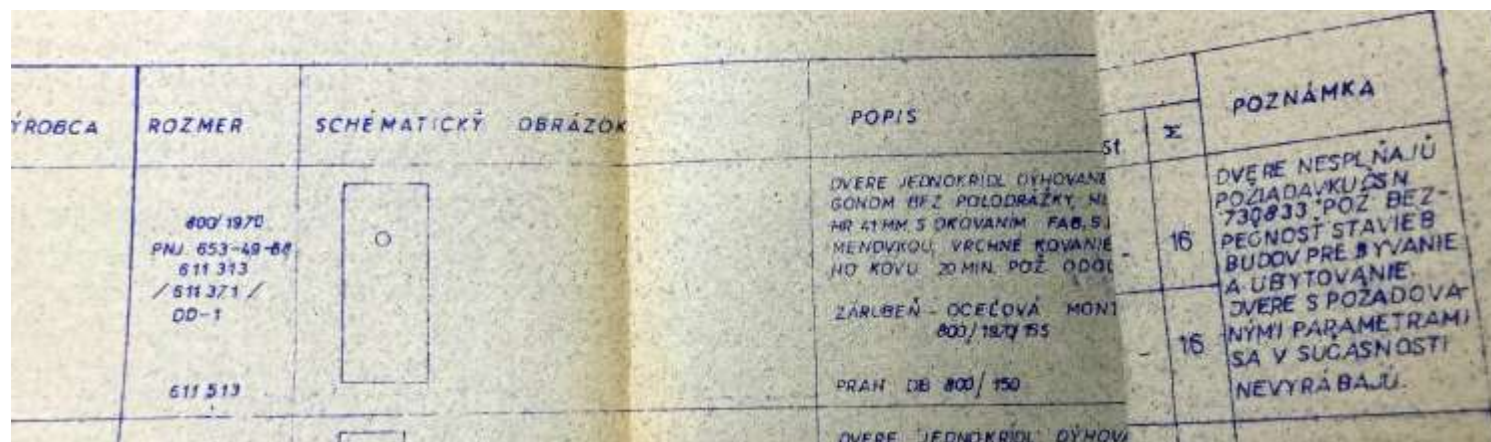 ÝROBCA
ROZMER
SCHÉMATICKÝ OBRÁZOK
POPIS
st
Σ
POZNÁMKA
800/1970
PNJ. 653-49-68
611 313
/611 371/
DD-1
611 513
DVERE JEDNOKRÍDL DÝHOVANÉ
GONOM BEZ POLODRÁŽKY, HL
HR 41 MM S OKOVANÍM FAB, S
MENOVKOU, VRCHNÉ KOVANIE
HO KOVU 20 MIN. POŽ. ODOL
ZÁRUBEŇ - OCEĽOVÁ MONT
800/1970/155
PRAH DB 800/150
DVERE JEDNOKRÍDL DÝHOV
16
16
DVERE NESPLŇAJÚ
POŽIADAVKU ČSN
730833 POŽ. BEZ-
PEČNOSŤ STAVIEB
BUDOV PRE BÝVANIE
A UBYTOVANIE.
DVERE S POŽADOVA-
NÝMI PARAMETRAMI
SA V SÚČASNOSTI
NEVYRÁBAJÚ.